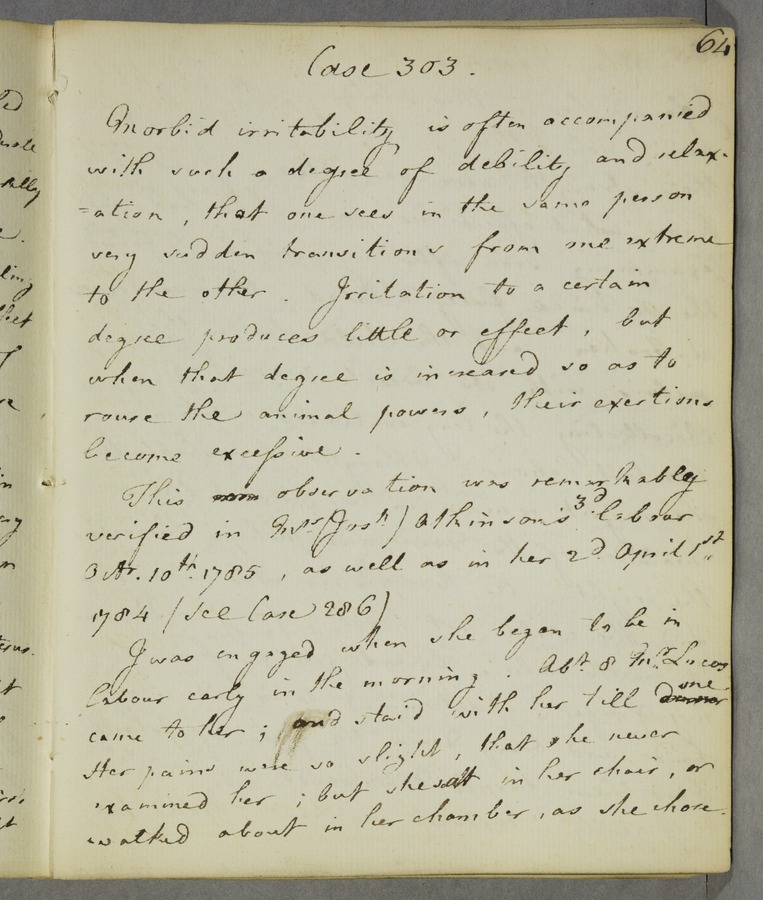 64
Case 303.
Morbid irritability is often accompanied
with such a degree of debility and relax-
=ation, that one sees in the same person
very sudden transitions from one extreme
to the other. Irritation to a certain
degree produces little or effect, but
when that degree is increased so as to
rouse the animal powers, their exertions
become excessive.
This observation was remarkably
verified in Mrs (Josh) Atkinson's 3d labour
10th. 1785, as well as in her 2d April 1st
1784 (see Case 286)
I was engaged when she began to be in
labour early in the morning. Abt. 8 Mr. Lucas
came to her; and staid with her till one
Her pains were so slight, that he never
examined her; but she satt in her chair, or
walked about in her chamber, as she chose.